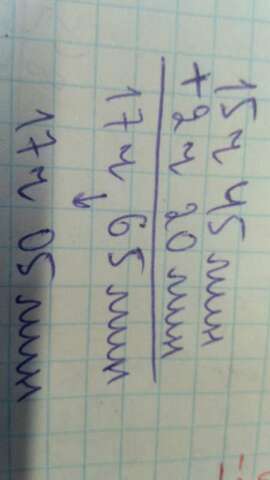 15 ч 45 мин
+ 2 ч 20 мин
17 ч 65 мин
17 ч 05 мин